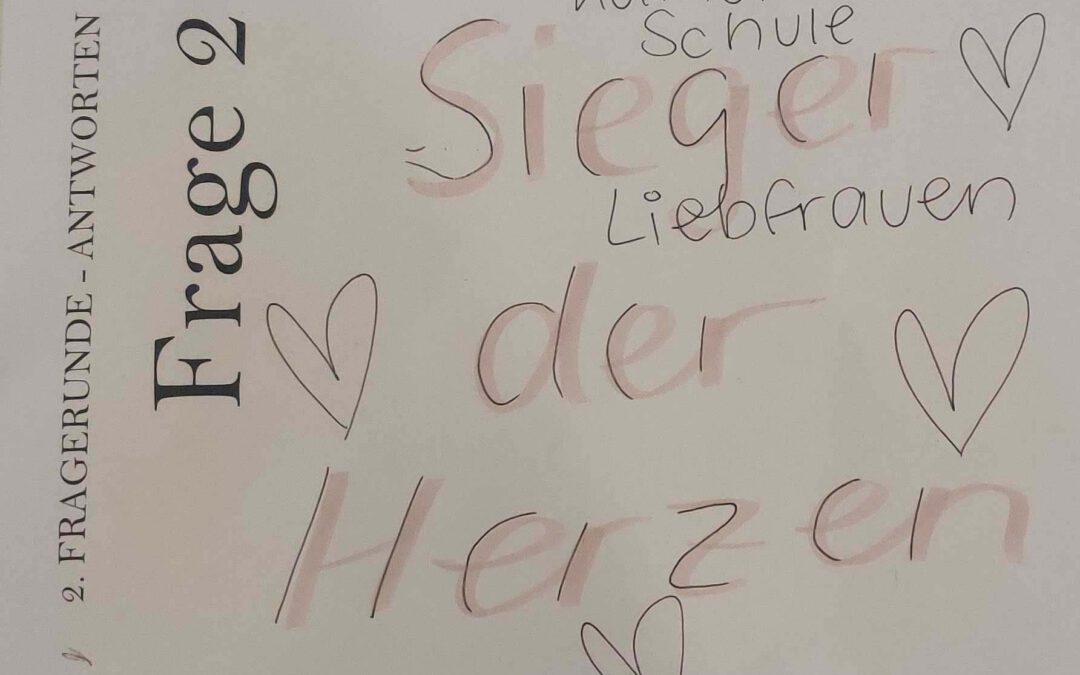 2. FRAGERUNDE - ANTWORTEN
Frage 2
Schule
Sieger
Liebfrauen
der
Herzen